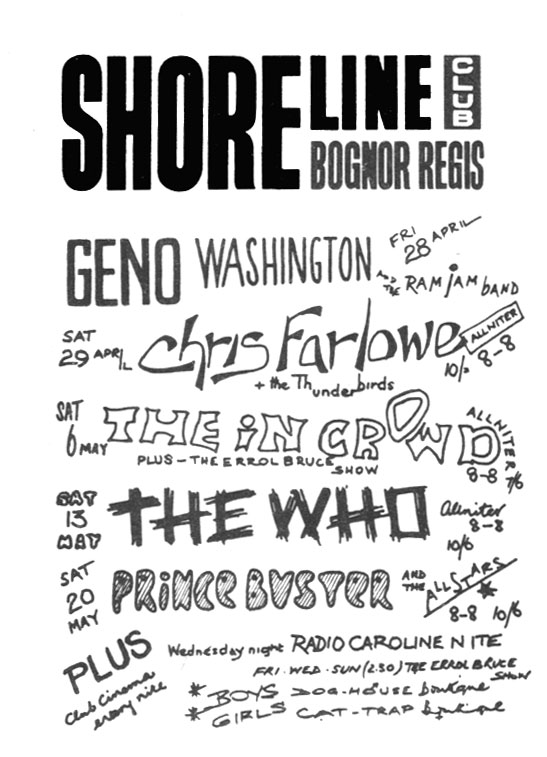 SHORELINE CLUB
BOGNOR REGIS
FRI 28 APRIL
GENO WASHINGTON
AND THE RAM JAM BAND
SAT 29 APRIL
Chris Farlowe
+ the Thunderbirds
ALLNITER
8-8
10/-
SAT 6 MAY
THE IN CROWD
PLUS - THE ERROL BRUCE SHOW
ALLNITER
8-8 7/6
SAT 13 MAY
THE WHO
Allniter
8-8
10/6
SAT 20 MAY
PRINCE BUSTER
AND THE ALL STARS
8-8 10/6
PLUS
Club Cinema every nite
Wednesday night RADIO CAROLINE NITE
FRI. WED. SUN (2.30) THE ERROL BRUCE SHOW
* BOYS DOG-HOUSE boutique
* GIRLS CAT-TRAP boutique